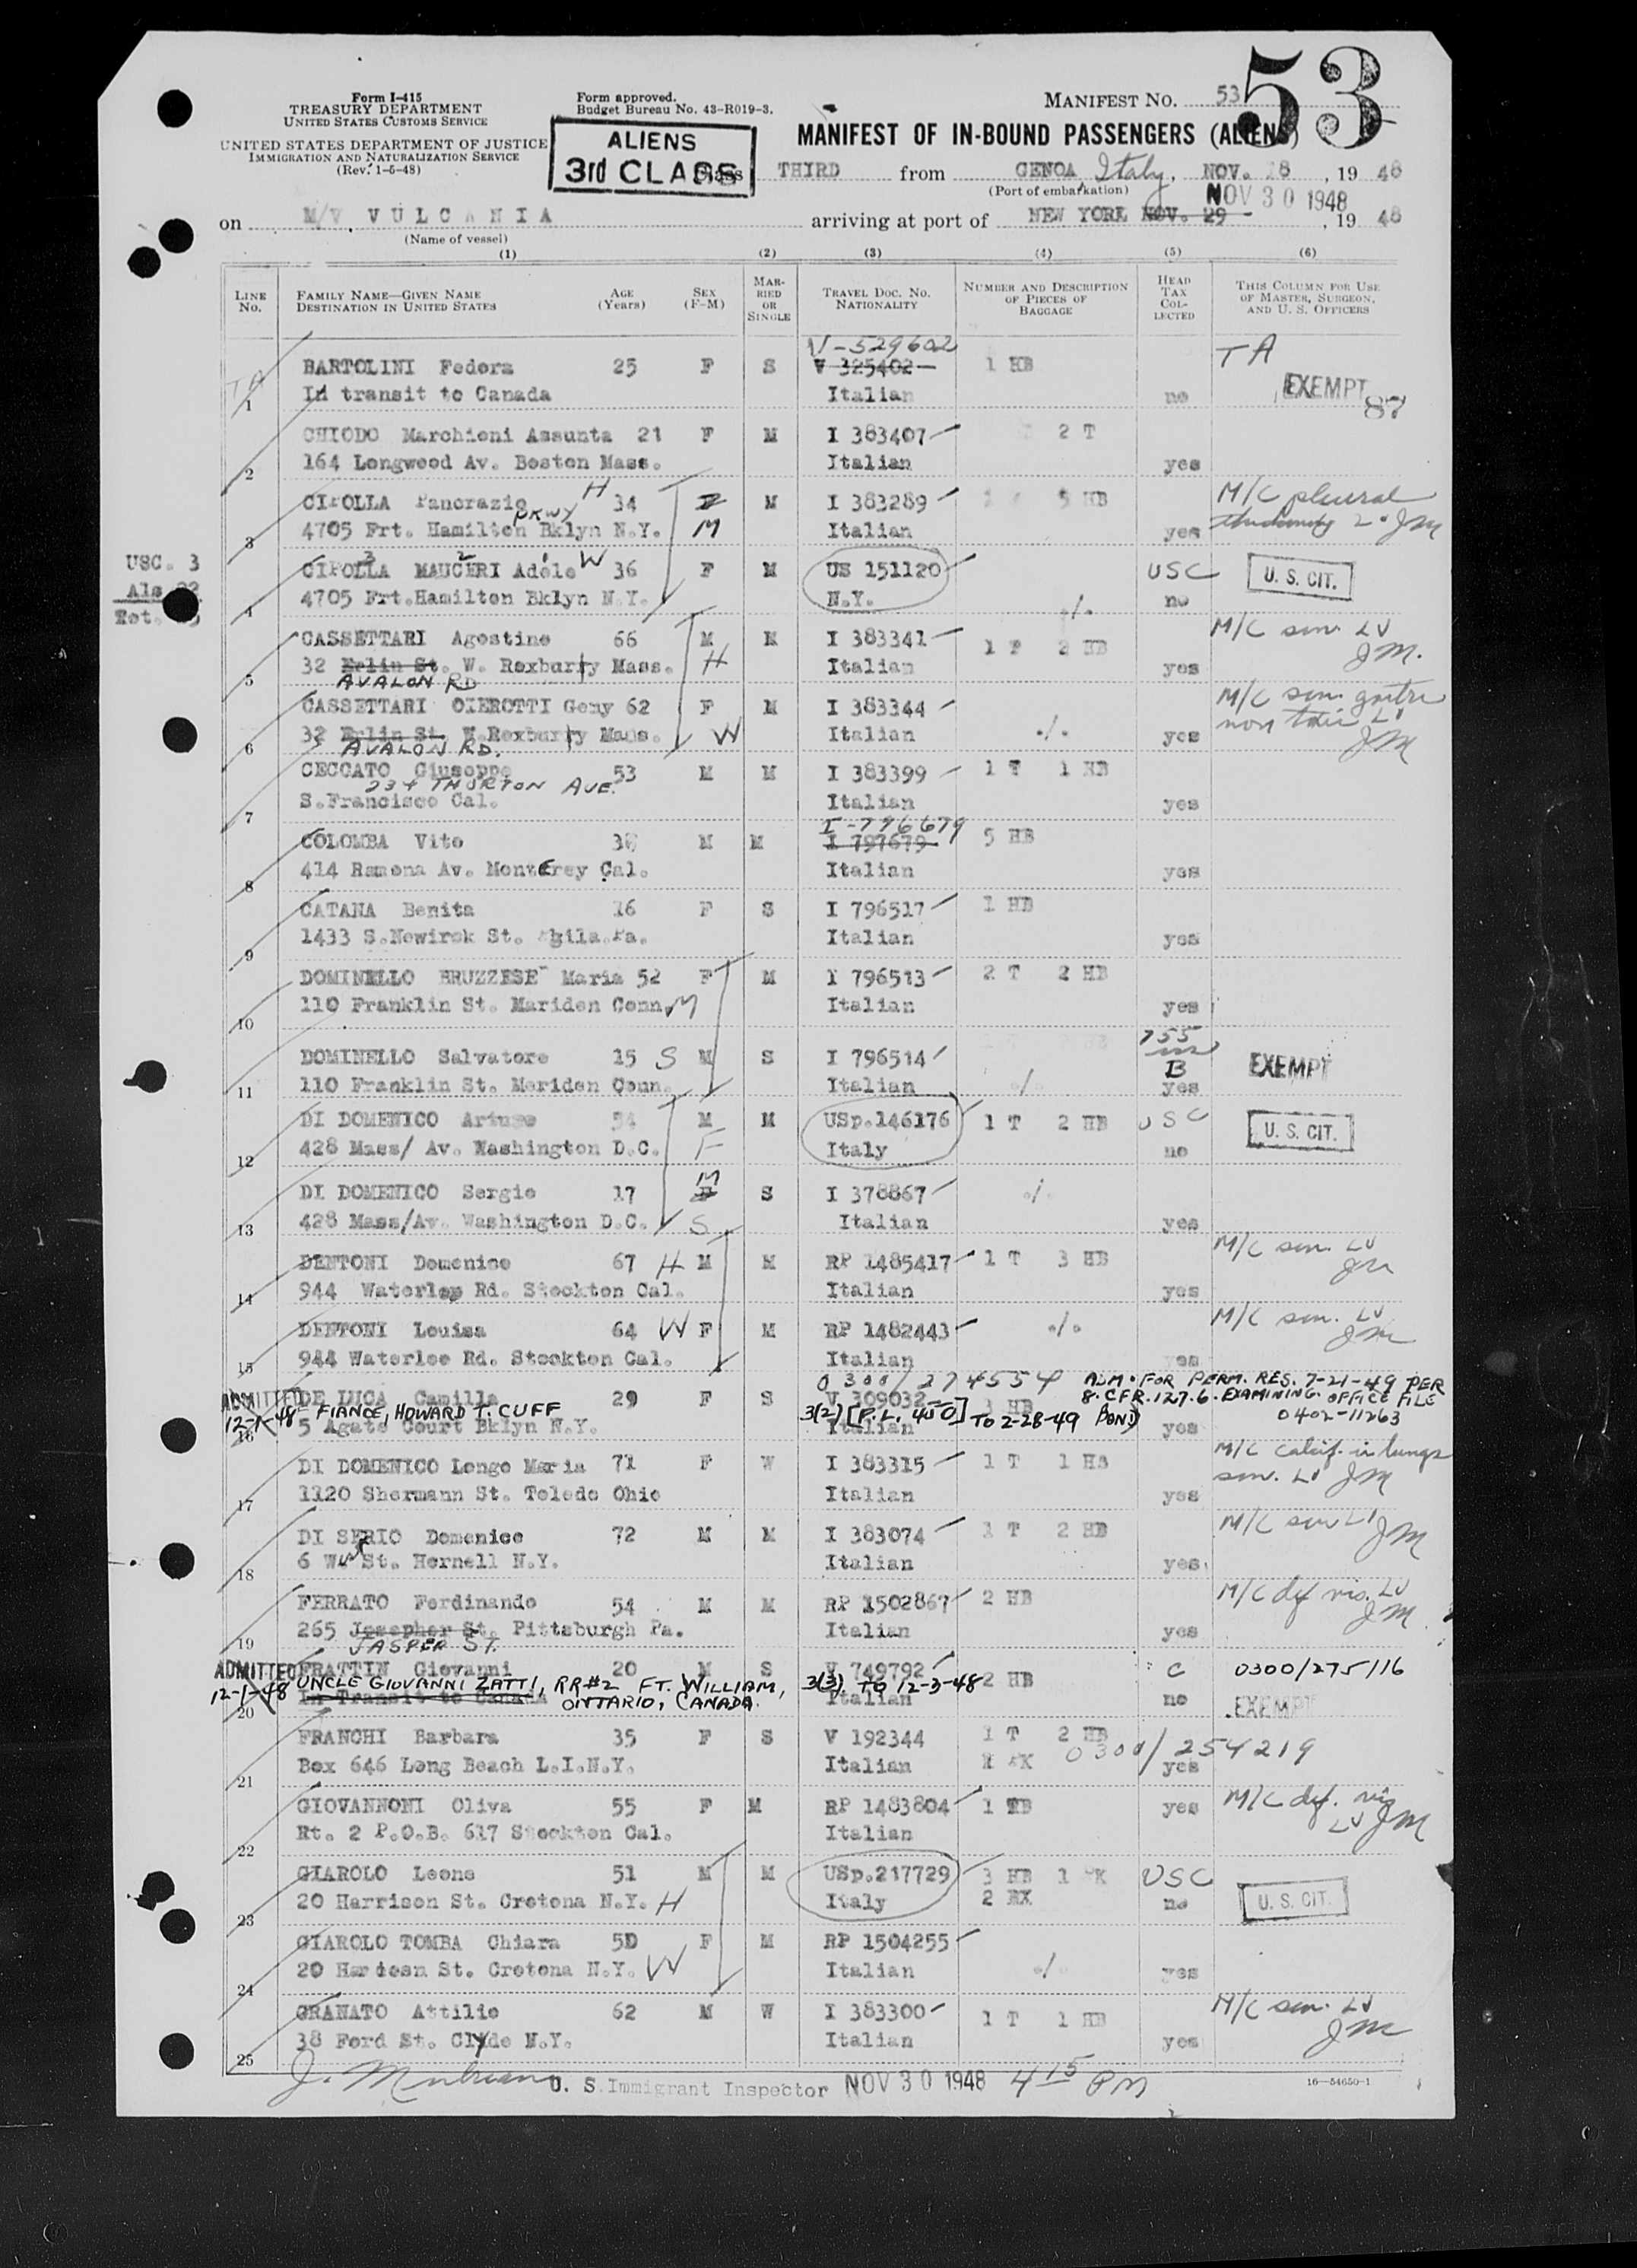 53
Form I-415
TREASURY DEPARTMENT
UNITED STATES CUSTOMS SERVICE
UNITED STATES DEPARTMENT OF JUSTICE
IMMIGRATION AND NATURALIZATION SERVICE
(Rev. 1-5-48)
Form approved.
Budget Bureau No. 43-R019-3.
ALIENS
3rd CLASS
MANIFEST No. 53
MANIFEST OF IN-BOUND PASSENGERS (ALIENS)
Class THIRD from GENOA Italy, NOV. 18, 19 48
(Port of embarkation)
NOV 30 1948
on M/V VULCANIA arriving at port of NEW YORK NOV. 29, 19 48
(Name of vessel)
(1) (2) (3) (4) (5) (6)
LINE No. FAMILY NAME—GIVEN NAME DESTINATION IN UNITED STATES AGE (Years) SEX (F-M) MARRIED OR SINGLE TRAVEL DOC. NO. NATIONALITY NUMBER AND DESCRIPTION OF PIECES OF BAGGAGE HEAD TAX COLLECTED THIS COLUMN FOR USE OF MASTER, SURGEON, AND U. S. OFFICERS
V-529602
BARTOLINI Fedora 25 F S V 325402 1 HB TA
TA 1 In transit to Canada Italian no EXEMPT 87
CHIODO Marchioni Assunta 21 F M I 383407 2 T
2 164 Longwood Av. Boston Mass. Italian yes
CIPOLLA Pancrazio H 34 F M I 383289 5 HB M/C pleural
3 4705 Frt. Hamilton PKWY Bklyn N.Y. M Italian yes thickening 2° JM
USC. 3
CIPOLLA MAUCERI Adele W 36 F M US 151120 USC U. S. CIT.
3 2
Als 22
4 4705 Frt.Hamilton Bklyn N.Y. N.Y. ./. no
Tot.
CASSETTARI Agostino 66 M M I 383341 1 T 2 HB M/C sen. LV
5 32 Erlin St. W. Roxburry Mass. H Italian yes JM.
AVALON RD
CASSETTARI CIEROTTI Geny 62 F M I 383344 M/C sen. goitre
6 32 Erlin St. W.Roxburry Mass. W Italian ./. yes non toxic LV JM
AVALON RD.
CECCATO Giuseppe 53 M M I 383399 1 T 1 HB
234 THORTON AVE.
7 S.Francisco Cal. Italian yes
I-796679
COLOMBA Vito 38 M M I 797679 5 HB
8 414 Ramona Av. Monterey Cal. Italian yes
CATANA Benita 16 F S I 796517 1 HB
9 1433 S.Newirok St. Phila.Pa. Italian yes
DOMINELLO BRUZZESE Maria 52 F M I 796513 2 T 2 HB
10 110 Franklin St. Mariden Conn. M Italian yes
755
DOMINELLO Salvatore 15 S M S I 796514 B EXEMPT
11 110 Franklin St. Meriden Conn. Italian ./. yes
DI DOMENICO 54 M M USp.146176 1 T 2 HB USC U. S. CIT.
12 428 Mass/ Av. Washington D.C. F Italy no
M
DI DOMENICO Sergio 17 F S I 378867 ./.
13 428 Mass/Av. Washington D.C. S Italian yes
DENTONI Domenico 67 H M M RP 1485417 1 T 3 HB M/C sen. LV
14 944 Waterloo Rd. Stockton Cal. Italian yes JM
DENTONI Louisa 64 W F M RP 1482443 ./. M/C sen. LV
15 944 Waterloo Rd. Stockton Cal. Italian yes JM
0300/274554 ADM. FOR PERM. RES. 7-21-49 PER
ADMITTED DE LUCA Camilla 29 F S V 309032 3 HB 8.CFR.127.6. EXAMINING OFFICE FILE
12-1-48 FIANCE, HOWARD T. CUFF 3(2) [P.L. 450] TO 2-28-49 BOND 0402-11263
16 5 Agate Court Bklyn N.Y. Italian yes
DI DOMENICO Longo Maria 71 F W I 383315 1 T 1 HB M/C calcif. in lungs
17 1120 Shermann St. Toledo Ohio Italian yes sen. LV JM
DI SERIO Domenico 72 M M I 383074 1 T 2 HB M/C sen LV
18 6 St. Hornell N.Y. Italian yes JM
FERRATO Ferdinando 54 M M RP 1502867 2 HB M/C def vis. LV
19 265 Josepher St. Pittsburgh Pa. Italian yes JM
JASPER ST.
ADMITTED FRATTIN Giovanni 20 M S V 749792 2 HB C 0300/275116
12-1-48 UNCLE GIOVANNI ZATTI, RR#2 FT. WILLIAM, 3(3) TO 12-3-48
20 In Transit to Canada ONTARIO, CANADA. Italian no EXEMPT
FRANCHI Barbara 35 F S V 192344 1 T 2 HB
0300/254219
21 Box 646 Long Beach L.I.N.Y. Italian yes
GIOVANNONI Oliva 55 F M RP 1483804 1 TB yes M/C def. vis
22 Rt. 2 P.O.B. 617 Stockton Cal. Italian LV JM
GIAROLO Leone 51 M M USp.217729 3 HB 1 PK USC
23 20 Harrison St. Cretona N.Y. H Italy 2 BX no U. S. CIT.
GIAROLO TOMBA Chiara 50 F M RP 1504255
24 20 Hardesn St. Cretona N.Y. W Italian ./. yes
GRANATO Attilio 62 M W I 383300 1 T 1 HB M/C sen. LV
25 38 Ford St. Clyde N.Y. Italian yes JM
U. S. Immigrant Inspector NOV 30 1948 4 15 PM
16—54650-1